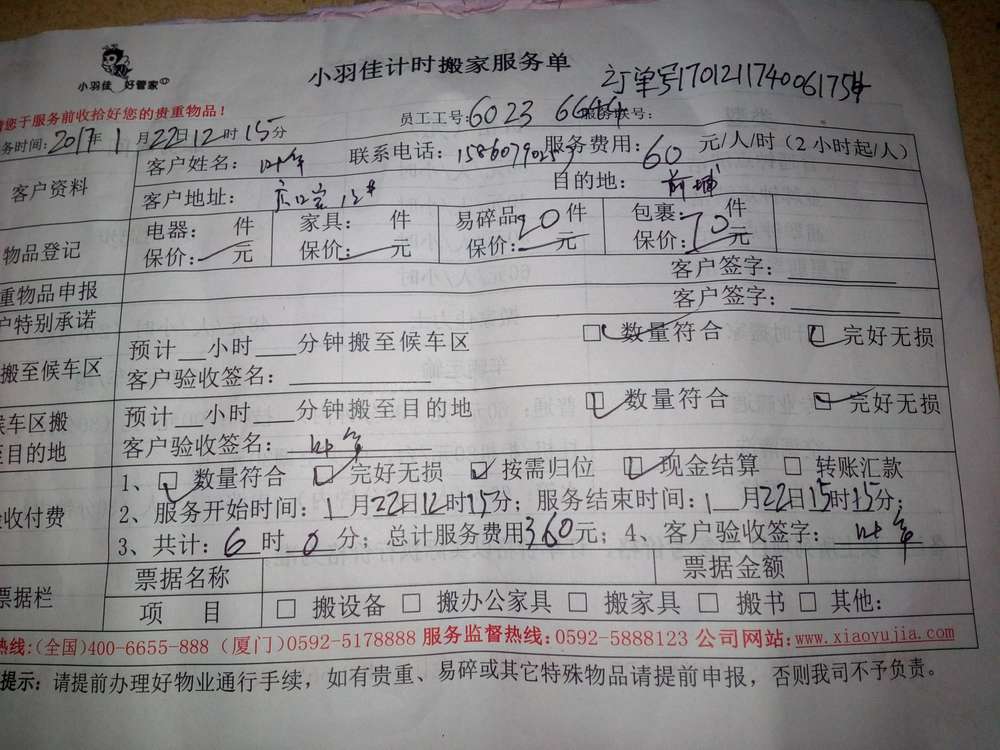 小羽佳 好管家
小羽佳计时搬家服务单
订单号1701211740061754
请您于服务前收拾好您的贵重物品！
员工工号：6023 6664 服务联号：
务时间：2017年1月22日12时15分
客户资料
客户姓名：叶 联系电话： 服务费用：60元/人/时（2小时起/人）
客户地址： 目的地：前埔
物品登记
电器： 件 家具： 件 易碎品20件 包裹：70件
保价： 元 保价： 元 保价： 元 保价： 元
重物品申报 客户签字：
户特别承诺 客户签字：
搬至候车区
预计__小时___分钟搬至候车区 □数量符合 □完好无损
客户验收签名：
候车区搬至目的地
预计__小时___分钟搬至目的地 □数量符合 □完好无损
客户验收签名：叶
验收付费
1、□数量符合 □完好无损 □按需归位 □现金结算 □转账汇款
2、服务开始时间：1月22日12时15分；服务结束时间：1月22日15时15分；
3、共计：6时0分；总计服务费用360元；4、客户验收签字：叶
票据栏
票据名称 票据金额
项 目 □搬设备 □搬办公家具 □搬家具 □搬书 □其他：
热线:(全国)400-6655-888 (厦门)0592-5178888 服务监督热线:0592-5888123 公司网站:www.xiaoyujia.com
提示：请提前办理好物业通行手续，如有贵重、易碎或其它特殊物品请提前申报，否则我司不予负责。